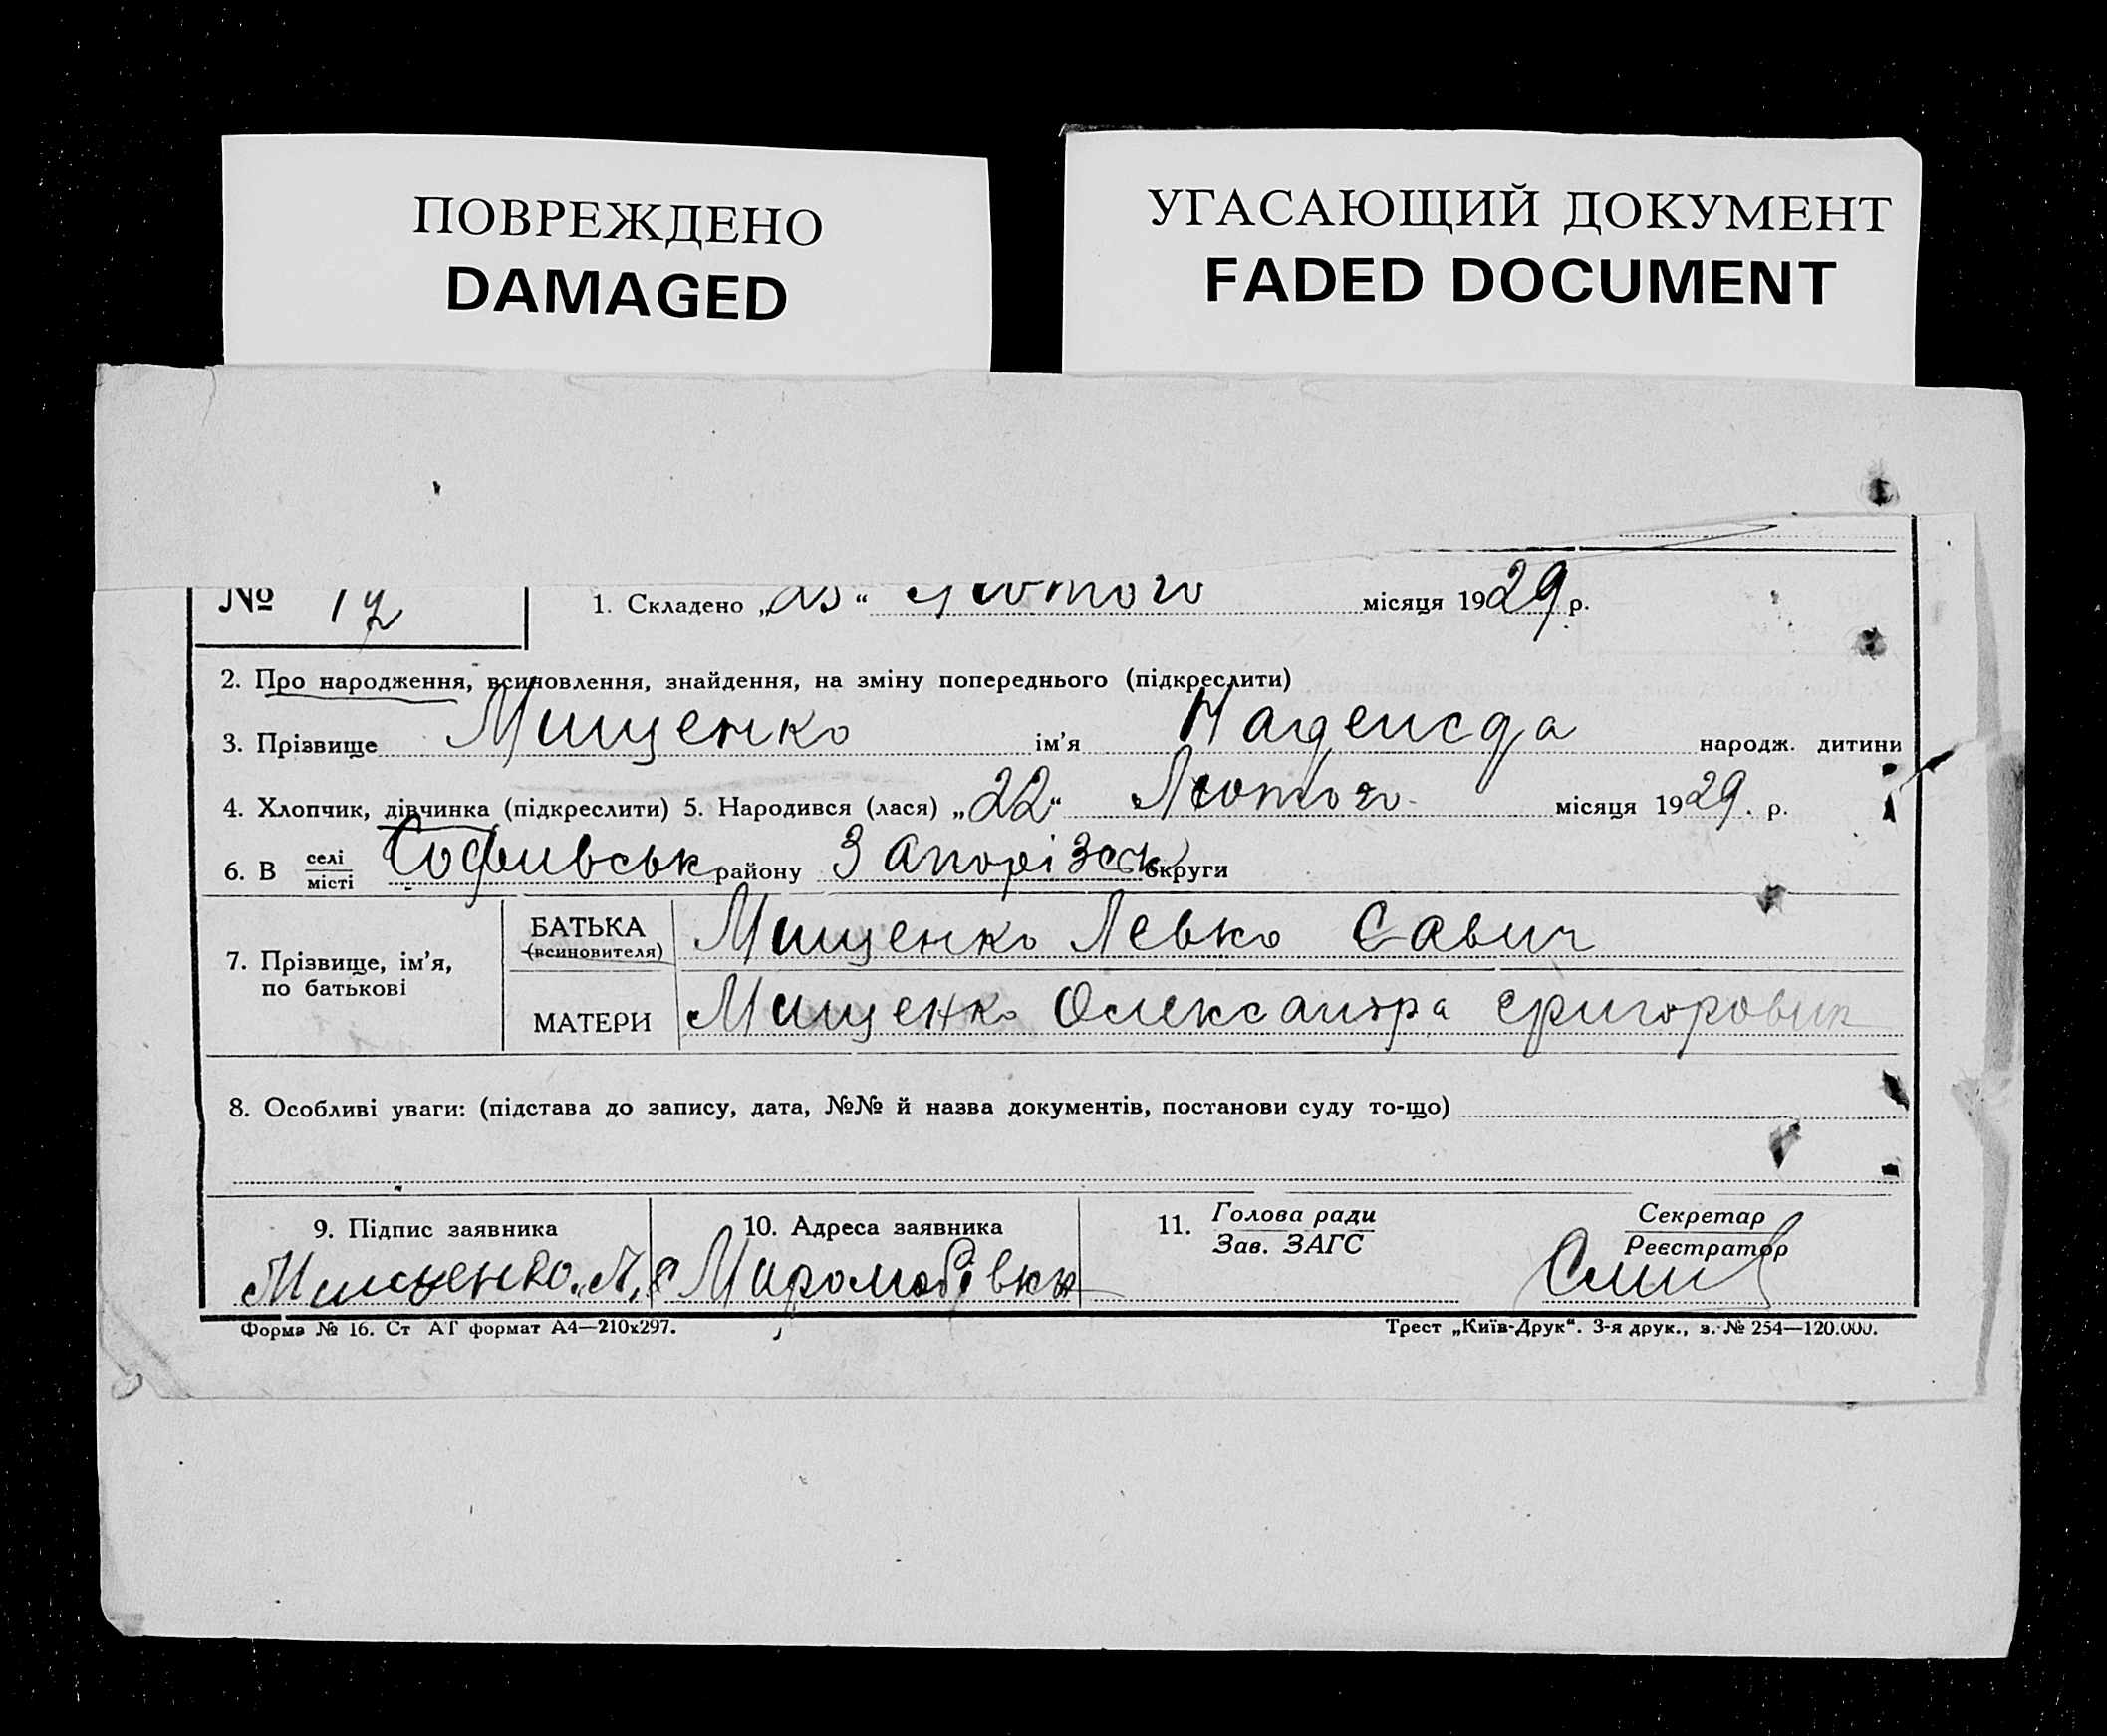 ПОВРЕЖДЕНО
DAMAGED
УГАСАЮЩИЙ ДОКУМЕНТ
FADED DOCUMENT
№ 17
1. Складено „ “ Лютого місяця 1929 р.
2. Про народження, всиновлення, знайдення, на зміну попереднього (підкреслити)
3. Прізвище Мищенко ім’я Надежда народж. дитини
4. Хлопчик, дівчинка (підкреслити) 5. Народився (лася) „22“ Лютого місяця 1929. р.
6. В селі
місті Софиевськ району Запорізськ округи
7. Прізвище, ім’я,
по батькові
БАТЬКА
(всиновителя)
Мищенко Левко Савич
МАТЕРИ
Мищенко Олександра Григоровин
8. Особливі уваги: (підстава до запису, дата, №№ й назва документів, постанови суду то-що)
9. Підпис заявника
Мищенко. Л.
10. Адреса заявника
с
11. Голова ради
Зав. ЗАГС
Секретар
Реєстратор
Форма № 16. Ст АГ формат А4—210х297.
Трест „Київ-Друк“. 3-я друк., з. № 254—120.000.